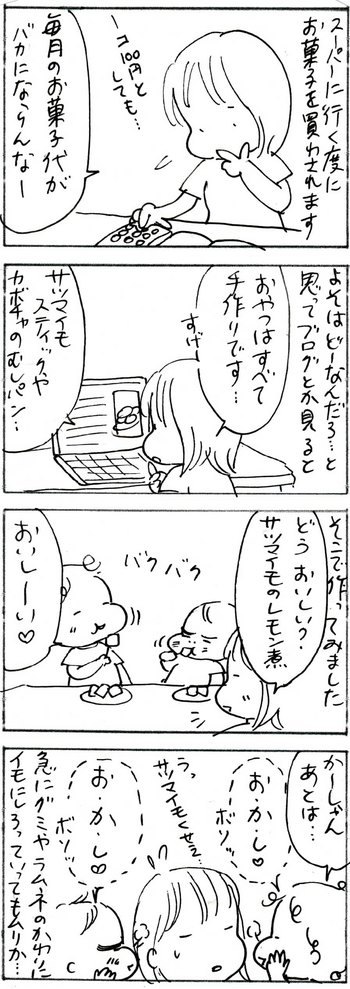 スーパーに行く度に
お菓子を買わされます
一コ100円と
しても…
毎月のお菓子代が
バカにならんなー
よそはどーなんだろ…と
思ってブログとか見ると
おやつはすべて
手作りです…
すげー
サツマイモ
スティックや
カボチャのむしパン…
そこで作ってみました
どう おいしい?
サツマイモのレモン煮
バクバク
おいしーい♡
かーしゃん
あとは…
お・か・し♡
ボソッ
うっ
サツマイモくせぇ…
お・か・し♡
ボソッ
急にグミやラムネのかわりに
イモにしろっていってもムリか…